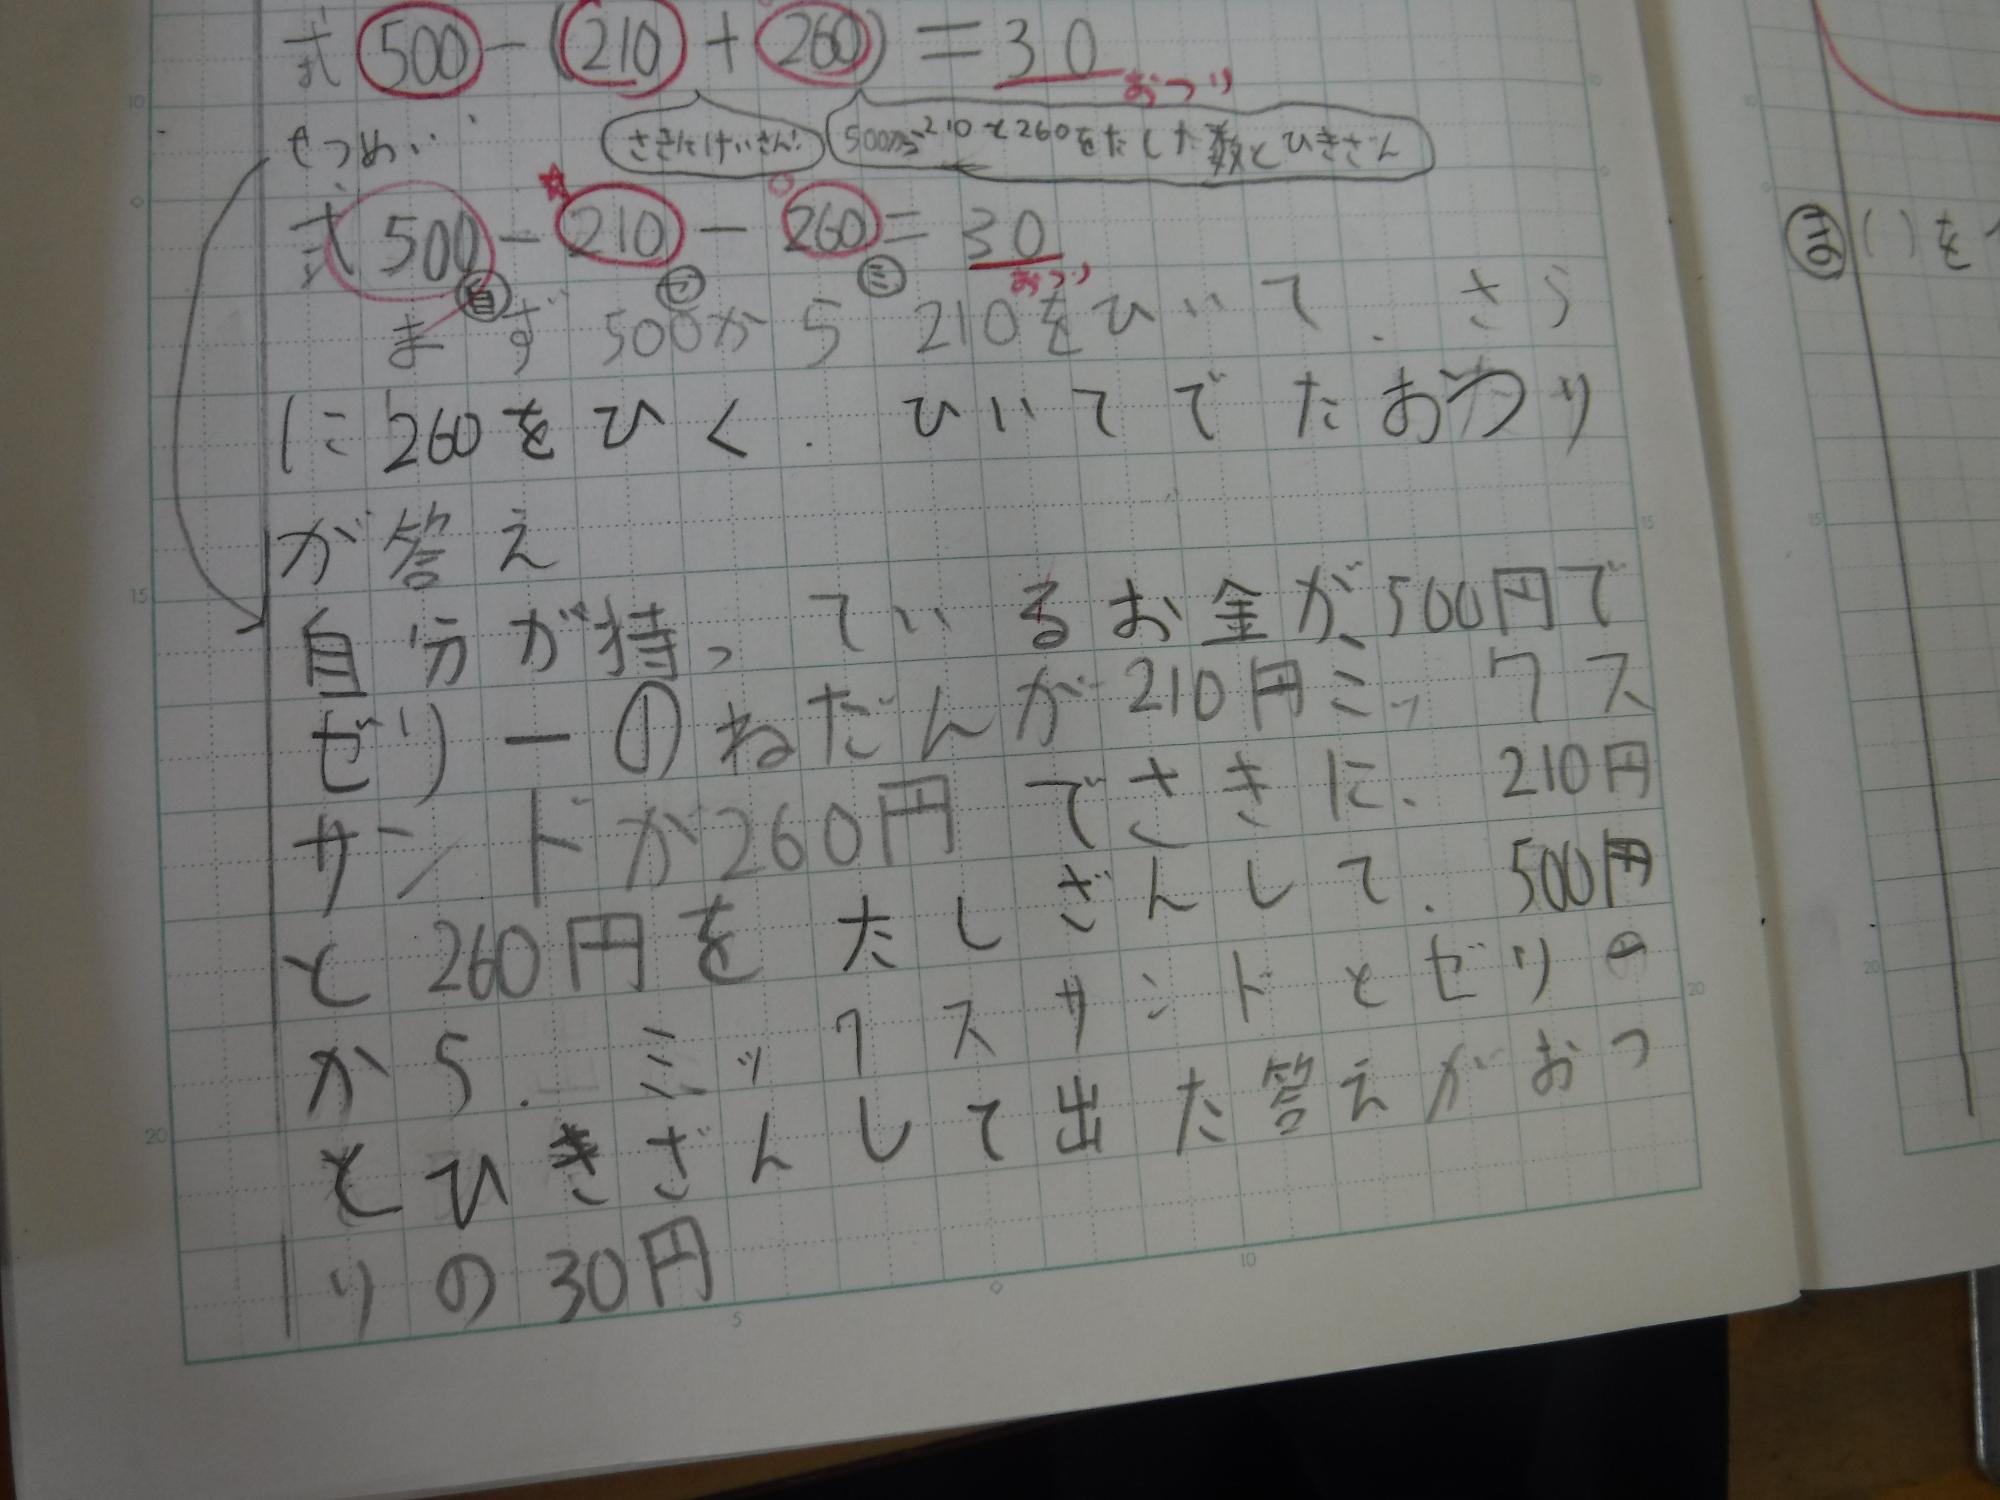 式 500-(210+260)=30
おつり
せつめい
さきにけいさん! 500から210と260をたした数とひきさん
式 500-210-260=30
自 ゼ ミ おつり
まず500から210をひいて.さら
に260をひく.ひいてでたおつり
が答え
自分が持っているお金が、500円で
ゼリーのねだんが210円ミックス
サンドが260円でさきに.210円
と260円をたしざんして.500円
から.ミックスサンドとゼリー
とひきざんして出た答えがおつ
りの30円
ま ( )を